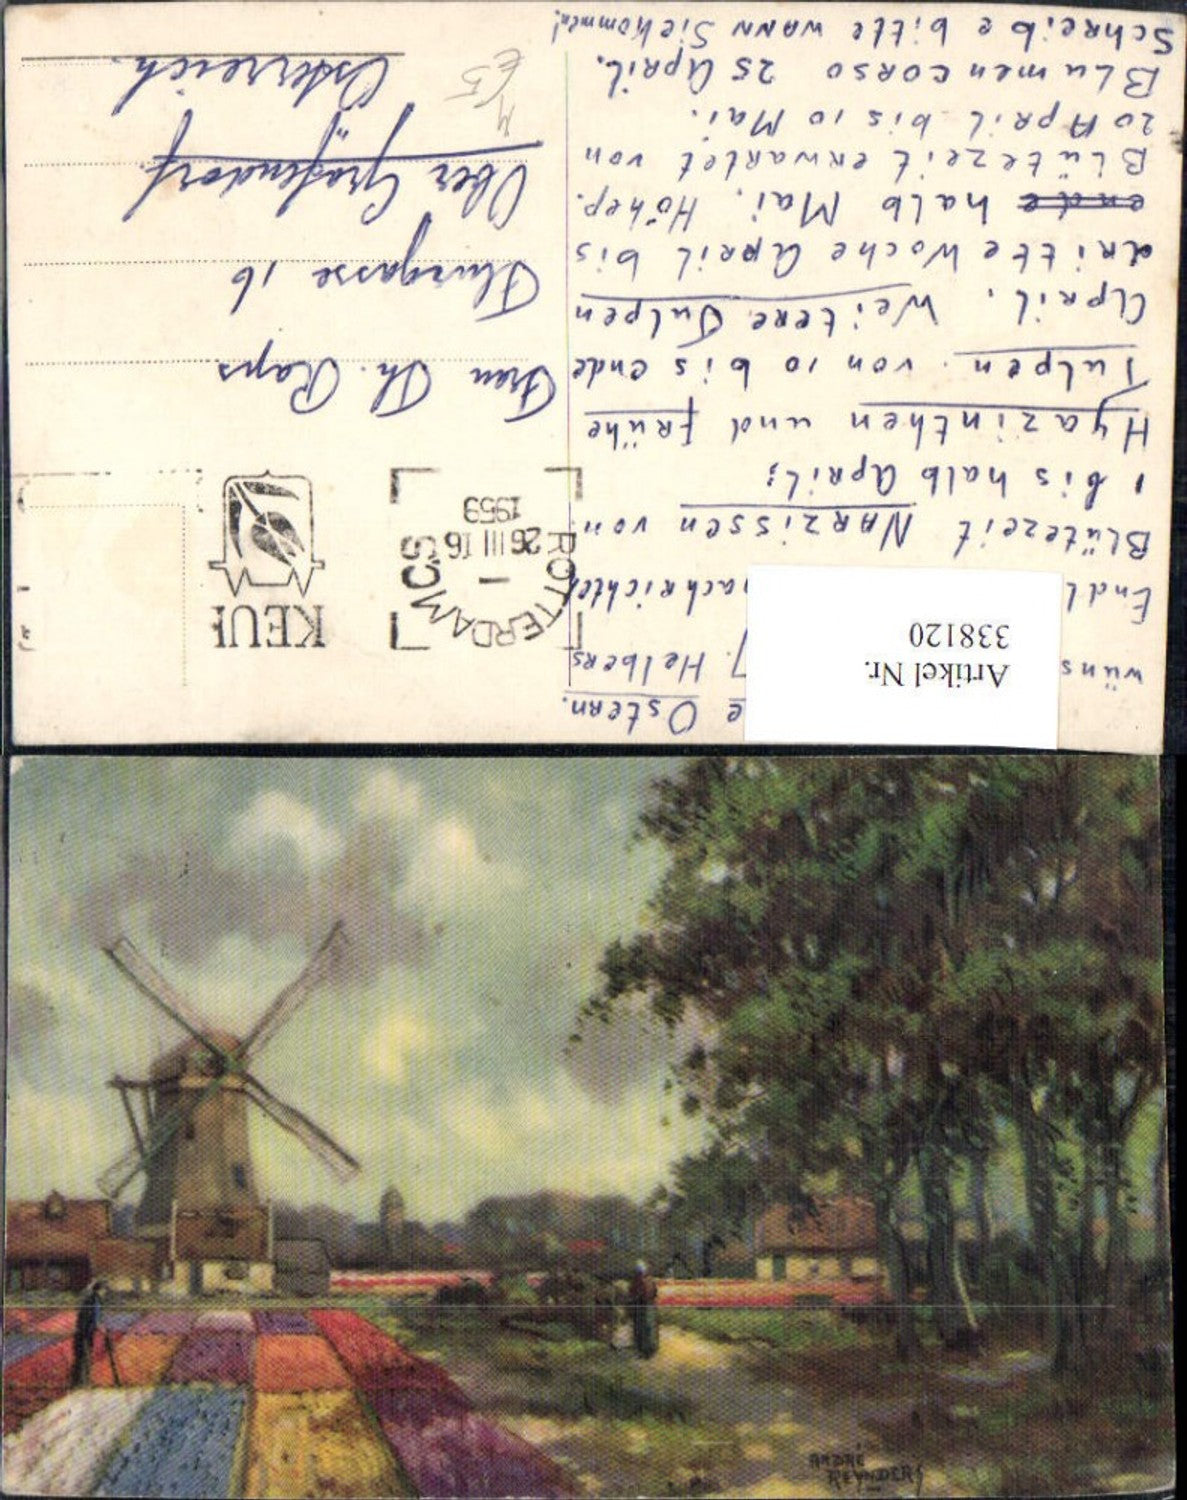 wüns
e Ostern.
. Helbers
Endl
nachrichten
Blütezeit Narzissen von
1 bis halb April;
Hyazinthen und Frühe
Tulpen. von 10 bis ende
April. Weitere Tulpen
dritte Woche April bis
ende halb Mai. Höhep.
Blütezeit erwartet von
20 April bis 10 Mai.
Blumencorso 25 April.
Schreibe bitte wann Sie kommen!
Artikel Nr.
338120
ROTTERDAM C.S
26 III 16
1959
KEU
Frau Th. Raps
Flurgasse 16
Ober Grafendorf
Österreich.
ANDRÉ
REYNDERS